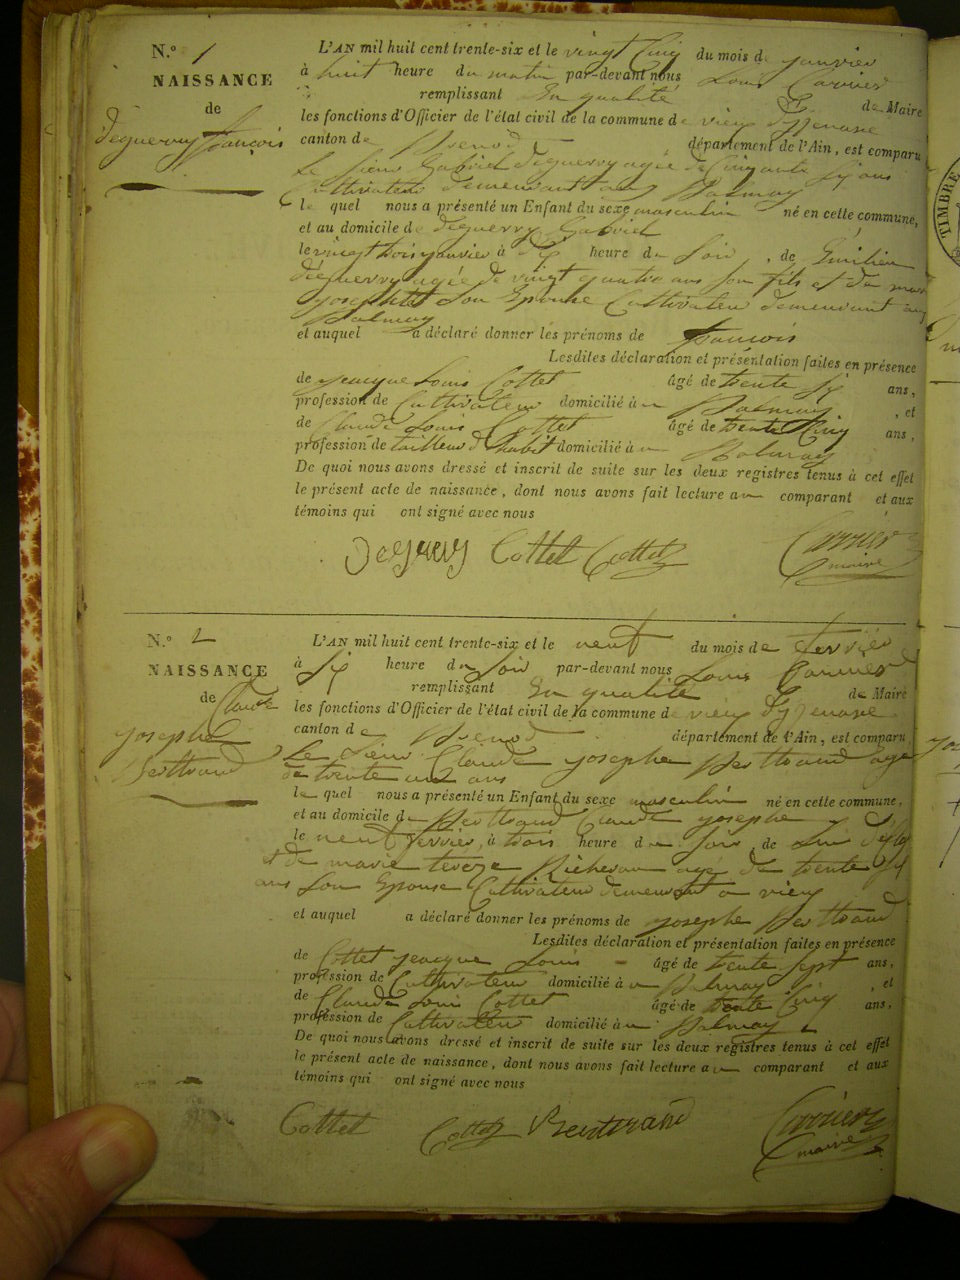 N.o 1
NAISSANCE
de
deguerry françois
L'AN mil huit cent trente-six et le vingt Cinq du mois de janvier
à huit heure du matin par-devant nous Louis Carrier
remplissant En qualité de Maire
les fonctions d'Officier de l'état civil de la commune de vieux d'yzenave
canton de Brenod département de l'Ain, est comparu
Le sieur Gabriel deguerry agée de Cinquante six ans
Cultivateur demeurant aux Balmay
le quel nous a présenté un Enfant du sexe masculin né en cette commune,
et au domicile de deguerry Gabriel
le vingt trois janvier à dix heure du Soir, de Emilien
deguerry agée de vingt quatre ans son fils et de
josephte son Epouse Cultivateur demeurant aux
Balmay
et auquel a déclaré donner les prénoms de francois
Lesdites déclaration et présentation faites en présence
de jeacque Louis Cottet âgé de trente six ans,
profession de Cultivateur domicilié à Balmay, et
de Claude Louis Cottet âgé de trente Cinq ans,
profession de tailleur d'habit domicilié à Balmay
De quoi nous avons dressé et inscrit de suite sur les deux registres tenus à cet effet
le présent acte de naissance, dont nous avons fait lecture au comparant et aux
témoins qui ont signé avec nous
Cottet Cottet Carrier
maire
N.o 2
NAISSANCE
de Claude
josephe
Berttrand
L'AN mil huit cent trente-six et le neuf du mois de fevrier
à six heure du Soir par-devant nous Louis Carrier
remplissant En qualité de Maire
les fonctions d'Officier de l'état civil de la commune de vieux d'yzenave
canton de Brenod département de l'Ain, est comparu
Le sieur Claude josephe Berttrand agée
de trente ans
le quel nous a présenté un Enfant du sexe masculin né en cette commune,
et au domicile de Berttrand Claude josephe
le neuf fevrier, à trois heure du Soir, de
et de marie tereze agé de trente
ans son Epouse Cultivateur demeurant a vieux
et auquel a déclaré donner les prénoms de josephe Berttrand
Lesdites déclaration et présentation faites en présence
de Cottet jeacque Louis âgé de trente sept ans,
profession de Cultivateur domicilié à Balmay, et
de Claude Louis Cottet âgé de trente Cinq ans,
profession de Cultivateur domicilié à Balmay
De quoi nous avons dressé et inscrit de suite sur les deux registres tenus à cet effet
le présent acte de naissance, dont nous avons fait lecture au comparant et aux
témoins qui ont signé avec nous
Cottet Cottet Carrier
maire
TIMBRE